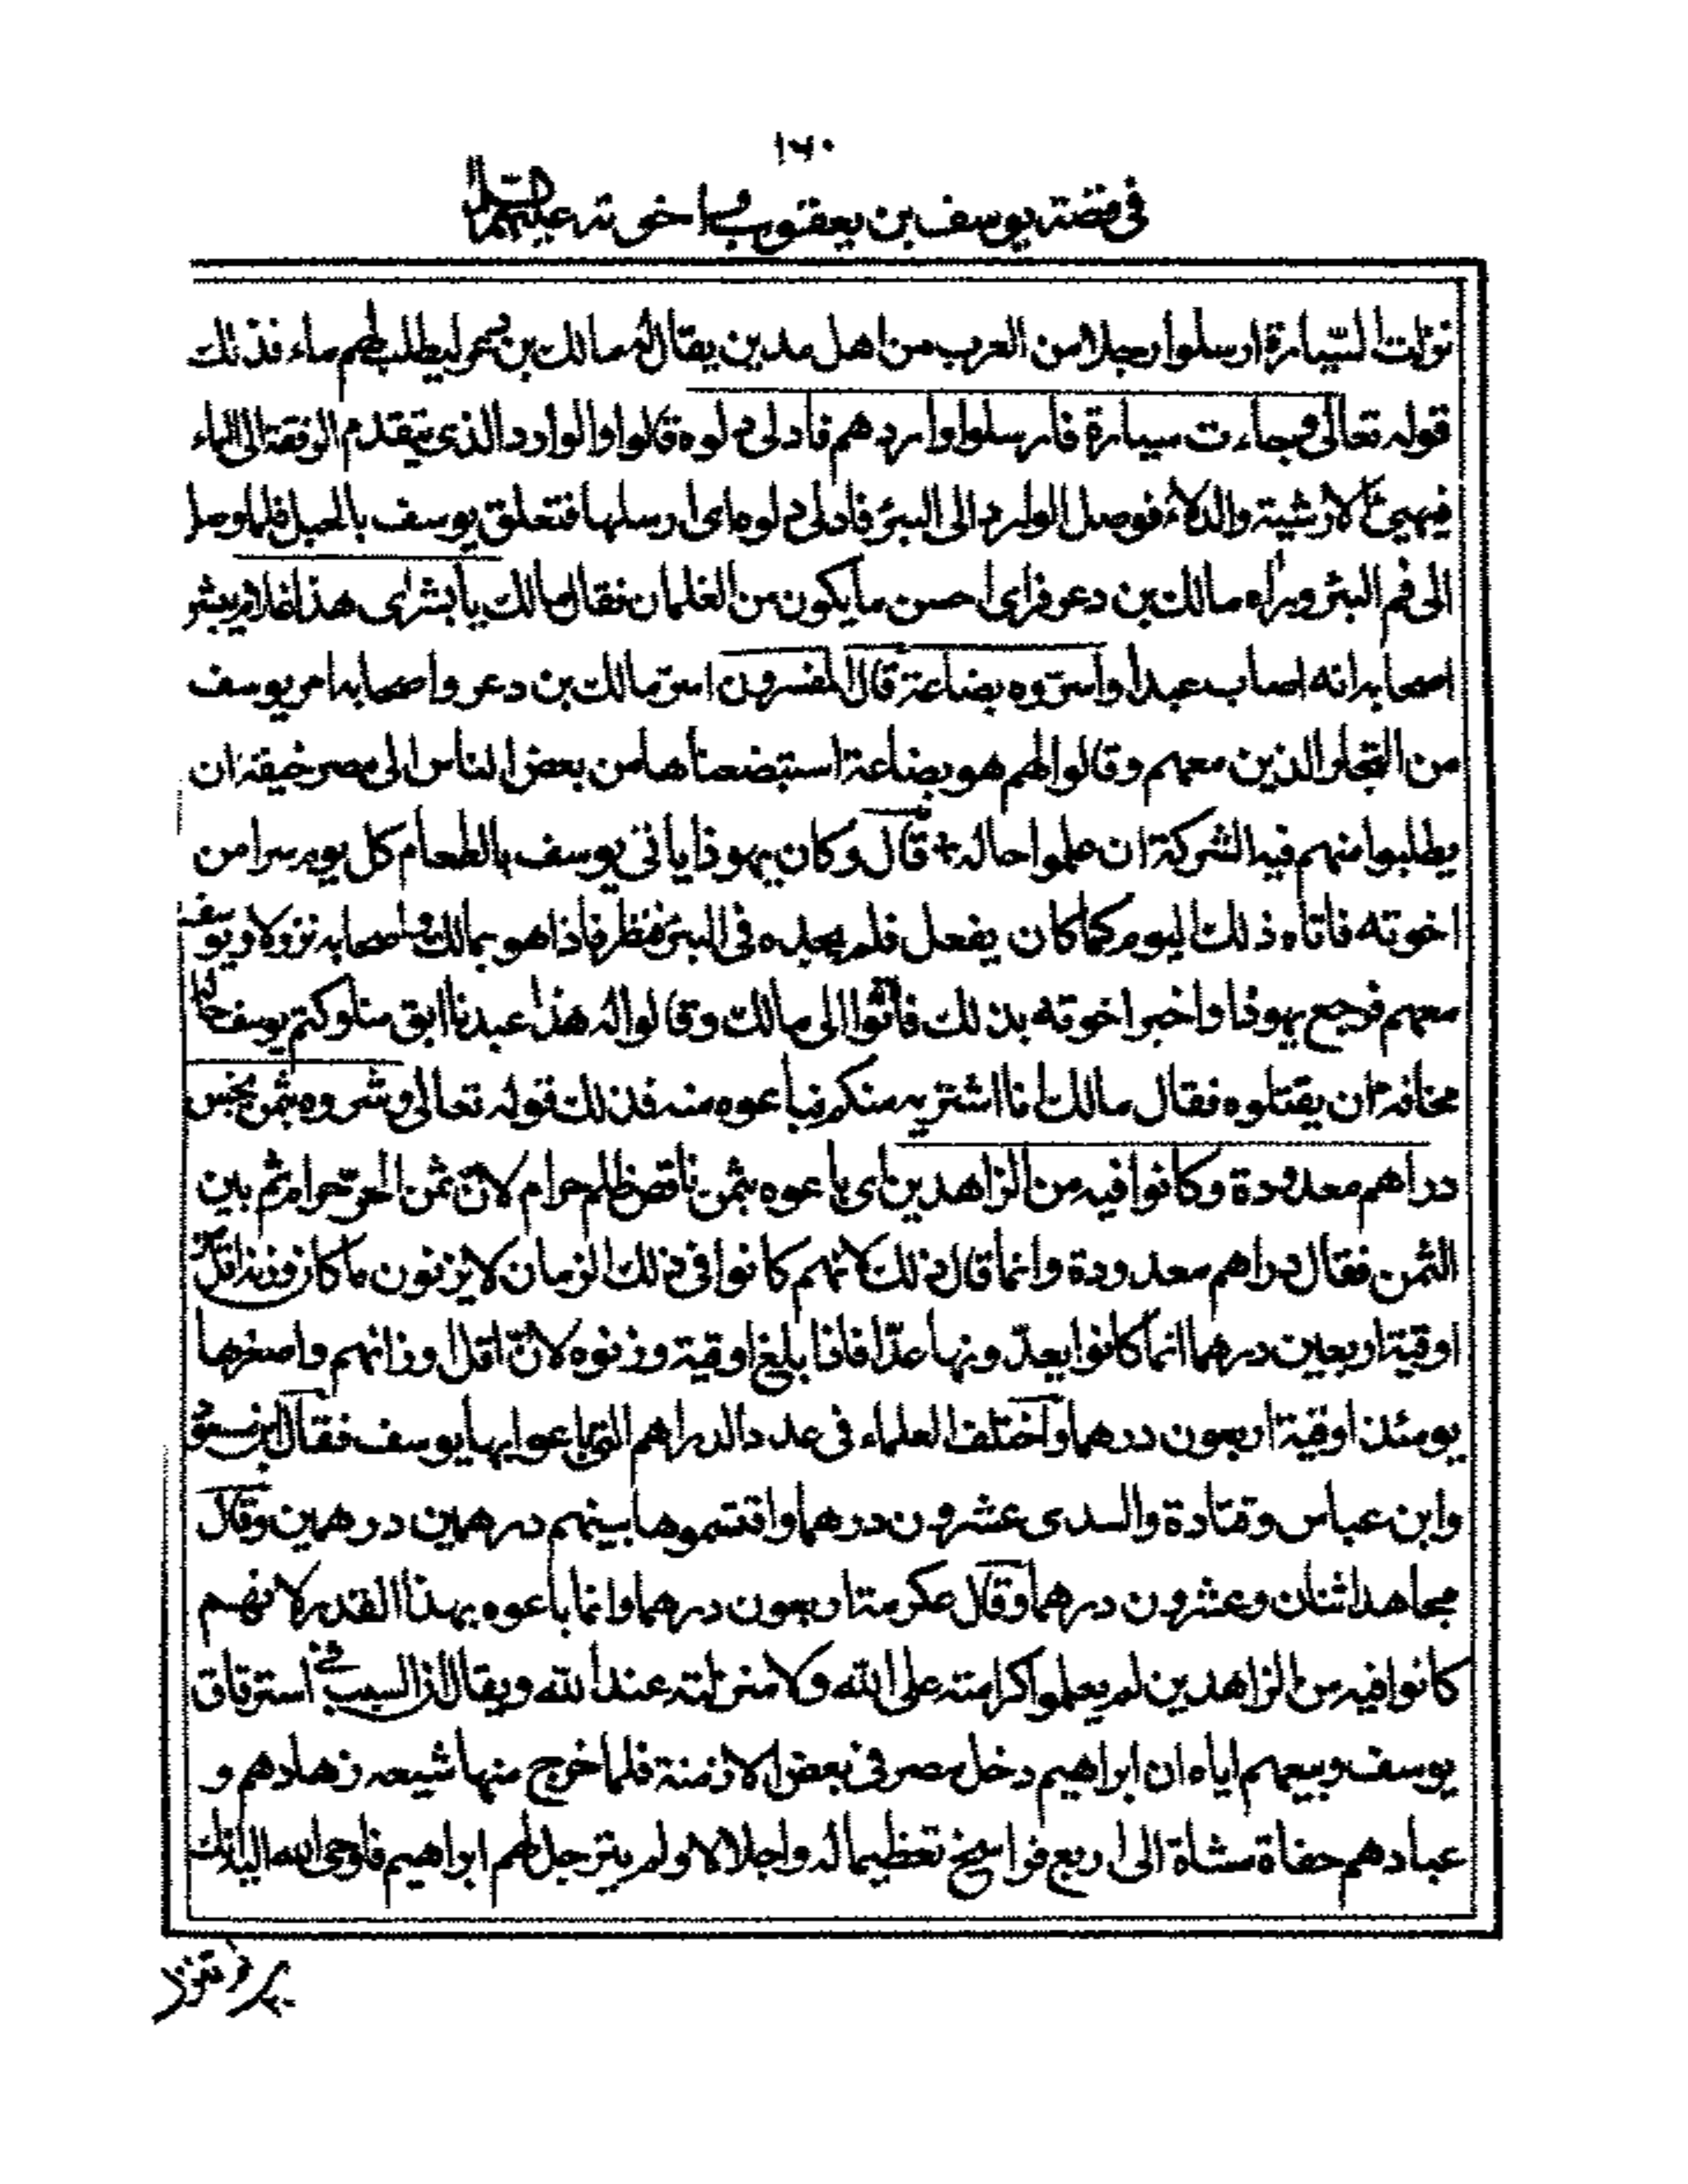 ١٦٠
في قصة يوسف بن يعقوب واخوته عليهم السلام
نزلت السيارة ارسلوا رجلا من العرب من اهل مدين يقال له مالك بن ليطلب لهم ماء فذلك
قوله تعالى وجاءت سيارة فارسلوا واردهم فادلى دلوه قالوا والوارد الذى يتقدم الرفقة الى الماء
فيهيئ الارشية والدلاء فوصل الوارد الى البئر فادلى دلوه اى ارسلها فتعلق يوسف بالحبل فلما وصل
الى فم البئر وراه مالك بن دعر فراى احسن ما يكون من الغلمان فقال مالك يا بشراى هذا غلام يبشر
اصحابه انه اصاب عبدا واسرّوه بضاعة قال المفسرون اسرّ مالك بن دعر واصحابه امر يوسف
من التجار الذين معهم وقالوا لهم هو بضاعة استبضعناها من بعض الناس الى مصر خيفة ان
يطلبوا منهم فيه الشركة ان علموا حاله + قال وكان يهوذا ياتى يوسف بالطعام كل يوم سرا من
اخوته فاتاه ذلك اليوم كما كان يفعل فلم يجده فى البئر فنظر فاذا هو بمالك واصحابه نزولا ويوسف
معهم فرجع يهوذا واخبر اخوته بذلك فاتوا الى مالك وقالوا له هذا عبدنا ابق منا وكتم يوسف حاله
مخافة ان يقتلوه فقال مالك انا اشتريه منكم فباعوه منه فذلك قوله تعالى وشروه بثمن بخس
دراهم معدودة وكانوا فيه من الزاهدين اى باعوه بثمن ناقص ظلم حرام لانّ ثمن الحرّ حرام ثم بين
الثمن فقال دراهم معدودة وانما قال ذلك لانهم كانوا فى ذلك الزمان لا يزنون ما كان وزنه اقل من
اوقية اربعين درهما انما كانوا يعدّونها عدّا فاذا بلغ اوقية وزنوه لانّ اقل اوزانهم واصغرها
يومئذ اوقية اربعون درهما واختلف العلماء فى عدد الدراهم التى باعوا بها يوسف فقال ابن مسعود
وابن عباس وقتادة والسدى عشرون درهما واقتسموها بينهم درهمين درهمين وقال
مجاهد اثنان وعشرون درهما وقال عكرمة اربعون درهما وانما باعوه بهذا القدر لانهم
كانوا فيه من الزاهدين لم يعلموا كرامته على الله ولا منزلته عند الله ويقال ان السبب فى استرقاق
يوسف وبيعهم اياه ان ابراهيم دخل مصر فى بعض الازمنة فلما خرج منها شيعه زهادهم و
عبادهم حفاة مشاة الى اربع فراسخ تعظيما له واجلالا ولم يترجل لهم ابراهيم فاوحى الله اليه انك